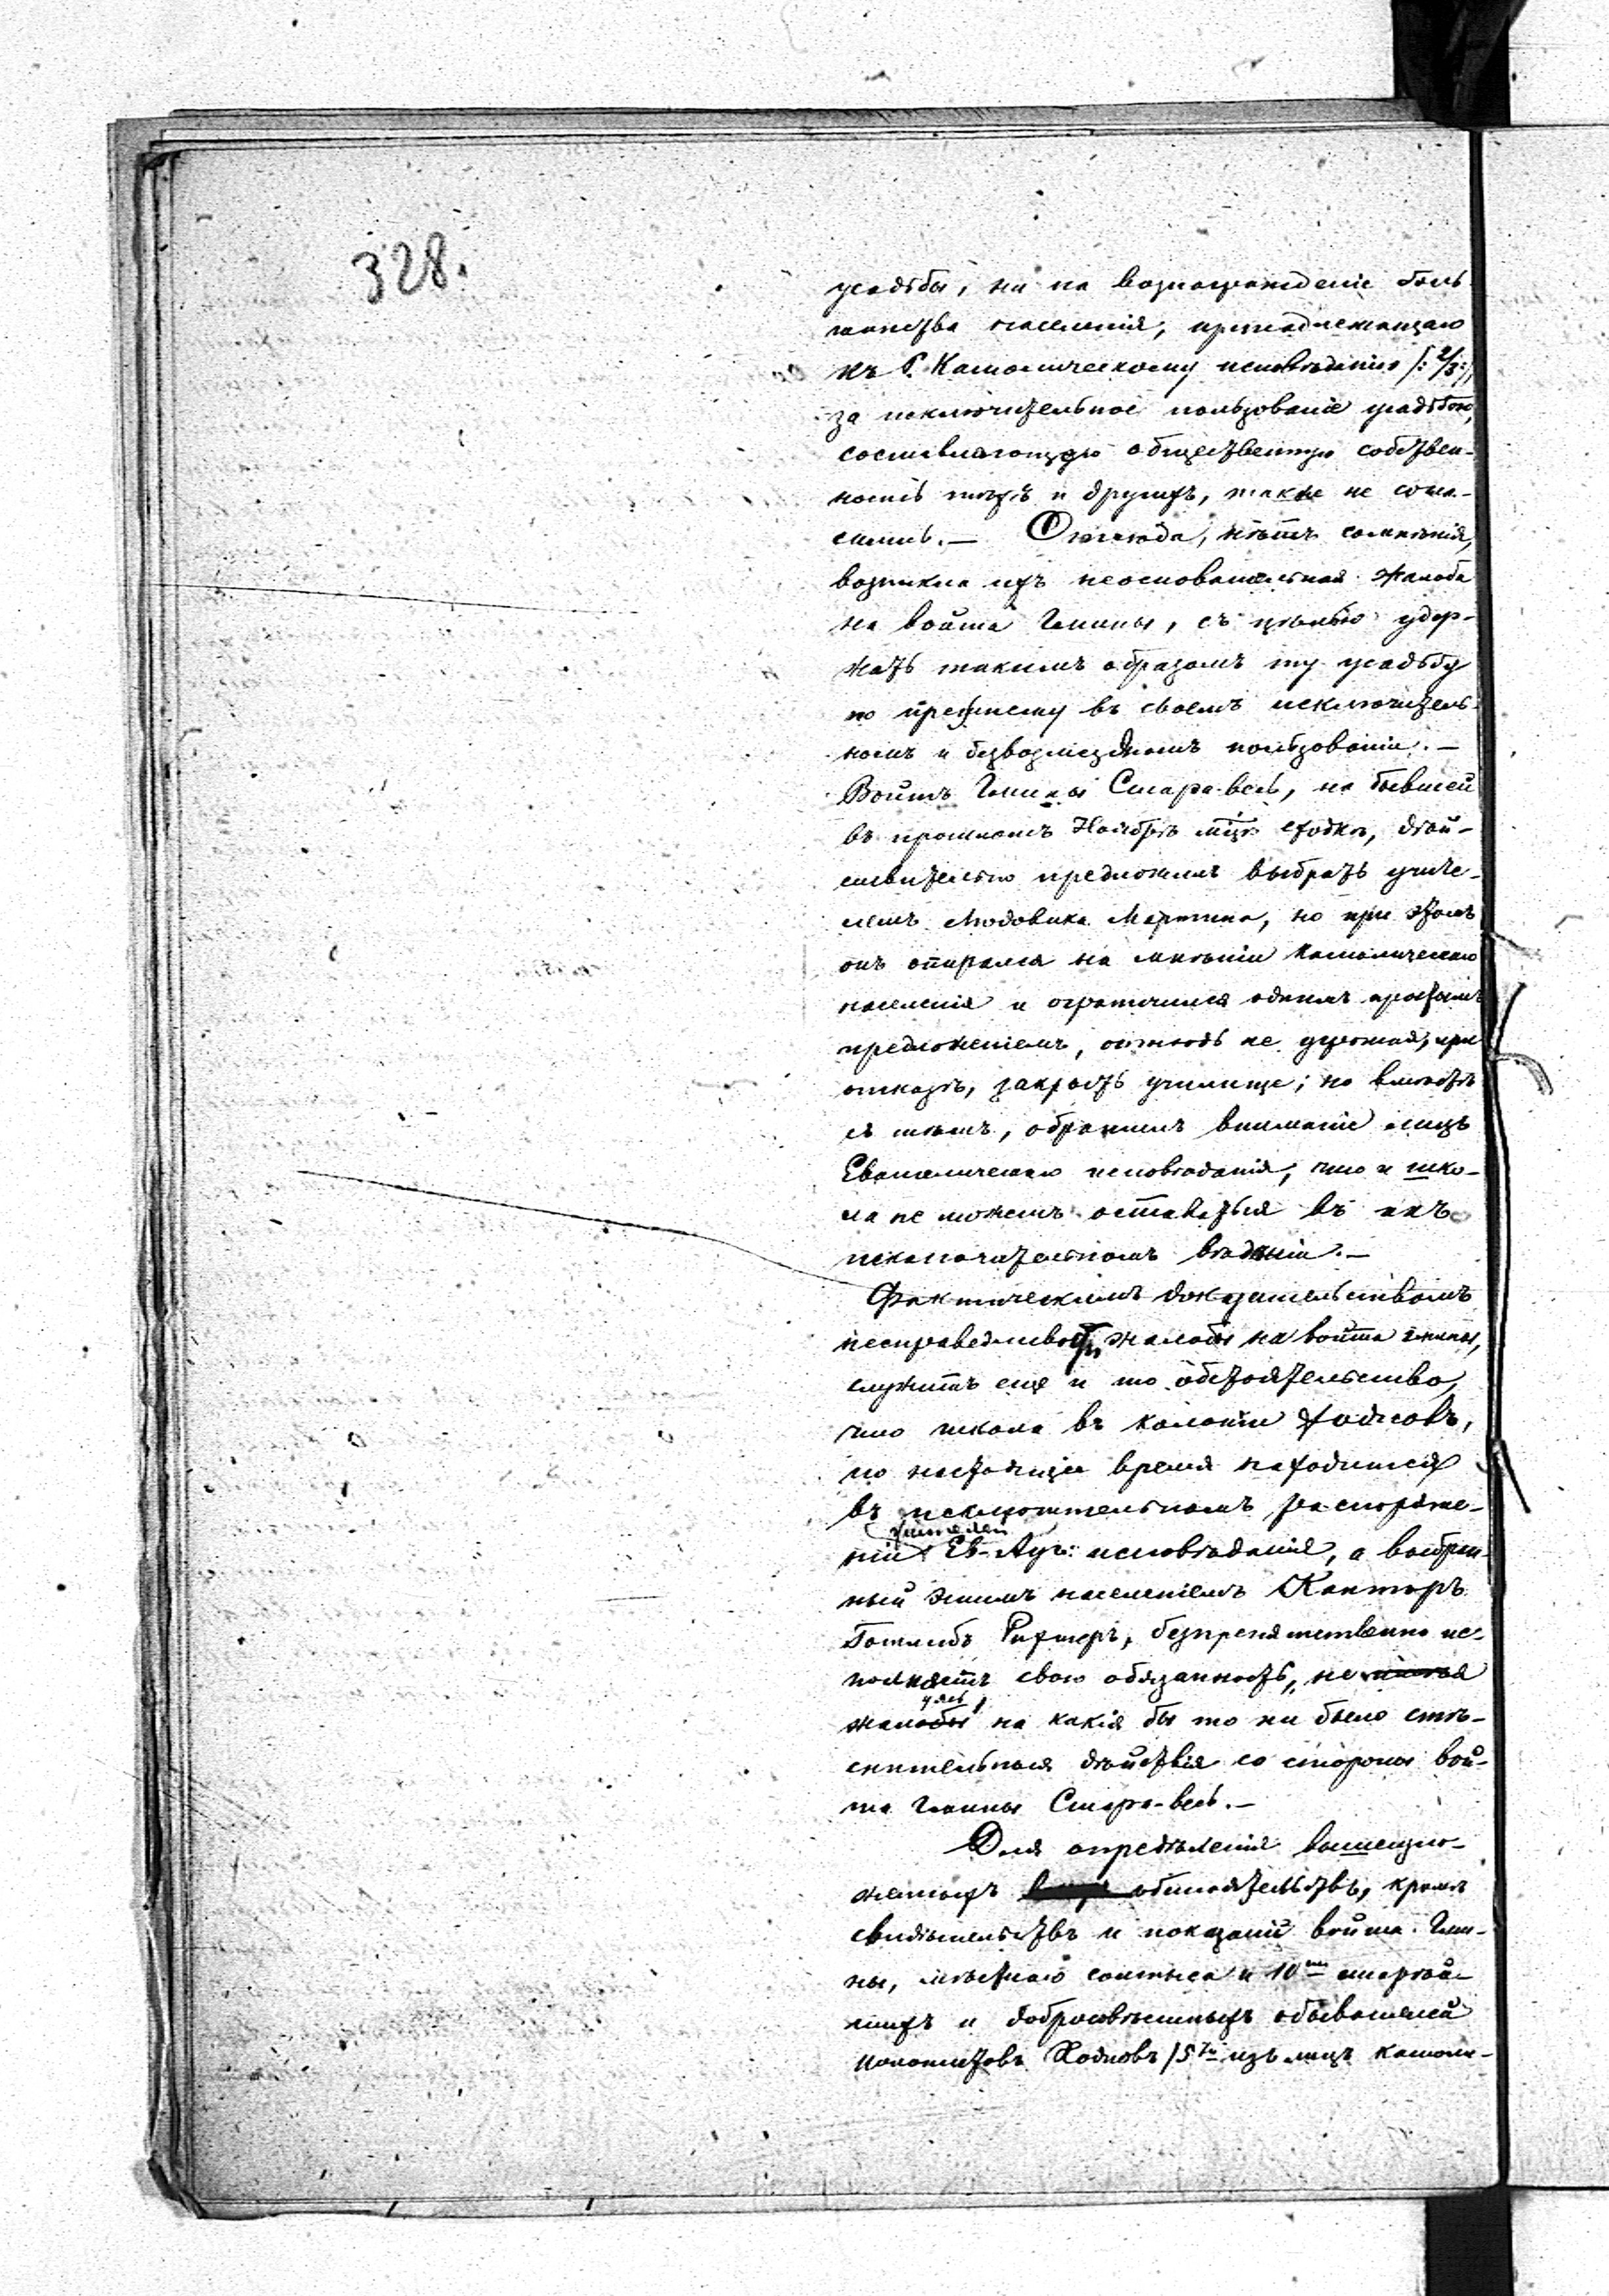 328.
усадьбы, ни на вознагражденіе боль-
шинства населенія, принадлежащаго
къ Р. Католическому исповѣданію /:2/3:/,
за исключительное пользованіе усадьбою,
составляющую общественную собствен-
ность тѣхъ и другихъ, также не согла-
сились.— Отсюда, нѣтъ сомнѣнія,
возникла ихъ неосновательная жалоба
на войта Гмины, съ цѣлью удер-
жать такимъ образомъ ту усадьбу
по прежнему въ своемъ исключитель-
номъ и безвозмездномъ пользованіи.—
Войтъ Гмины Стара-весь, на бывшей
въ прошломъ Ноябрѣ мцѣ сходкѣ, дѣй-
ствительно предложилъ выбрать учите-
лемъ Людовика Мартина, но при этомъ
онъ опирался на мнѣніи католическаго
населенія и ограничился однимъ простымъ
предложеніемъ, отнюдь не угрожая, при
отказѣ, закрыть училище; но вмѣстѣ
съ тѣмъ, обратилъ вниманіе лицъ
Евангелическаго исповѣданія, что и шко-
ла не можетъ оставаться въ ихъ
исключительномъ владѣніи.—
Фактическимъ доказательствомъ
несправедливости жалобы на войта гмины,
служитъ еще и то обстоятельство,
что школа въ колоніи Ходковъ,
по настоящее время находится
въ исключительномъ распоряже-
ніи жителей Ев-Ауг: исповѣданія, а выбран-
ный этимъ населеніемъ Канторъ
Готлибъ Рихтеръ, безпрепятственно ис-
полняетъ свою обязанность, не
жалуясь на какія бы то ни было стѣ-
снительныя дѣйствія со стороны вой-
та Гмины Стара-весь.—
Для опредѣленія вышеизло-
женныхъ обстоятельствъ, кромѣ
свидѣтельствъ и показаній войта Гми-
ны, мѣстнаго солтыса и 10ти старѣй-
шихъ и добросовѣстныхъ обывателей
колонистовъ Ходковъ /5ти изъ лицъ католи-